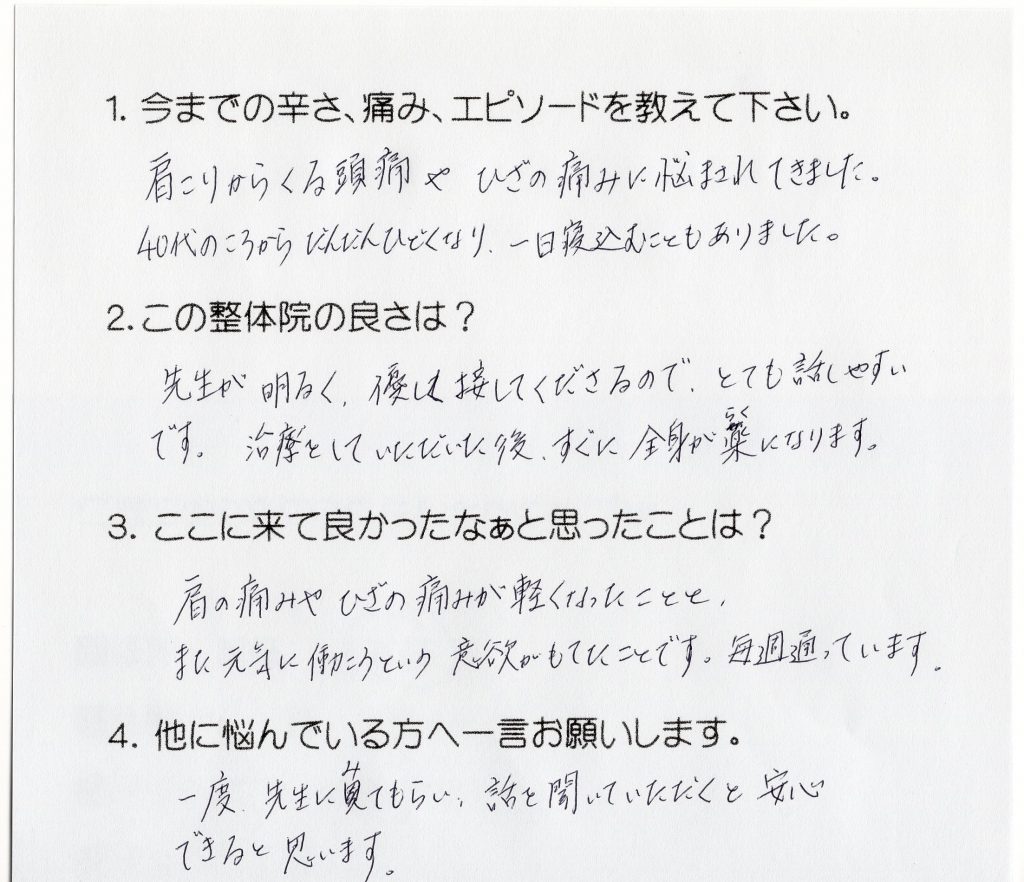 1. 今までの辛さ、痛み、エピソードを教えて下さい。
肩こりからくる頭痛や ひざの痛みに悩まされてきました。
40代のころからだんだんひどくなり、一日寝込むこともありました。
2. この整体院の良さは？
先生が明るく、優しく接してくださるので、とても話しやすい
です。 治療をしていただいた後、すぐに 全身が楽になります。
らく
3. ここに来て良かったなぁと思ったことは？
肩の痛みや ひざの痛みが軽くなったことと、
また元気に働こうという 意欲がもてたことです。毎週通っています。
4. 他に悩んでいる方へ一言お願いします。
み
一度、先生にてもらい、話を聞いていただくと 安心
できると思います。